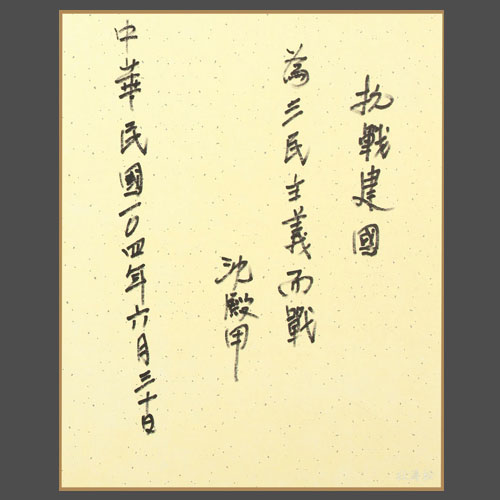 抗戰建國
為三民主義而戰
沈殿甲
中華民國一0四年六月三十日